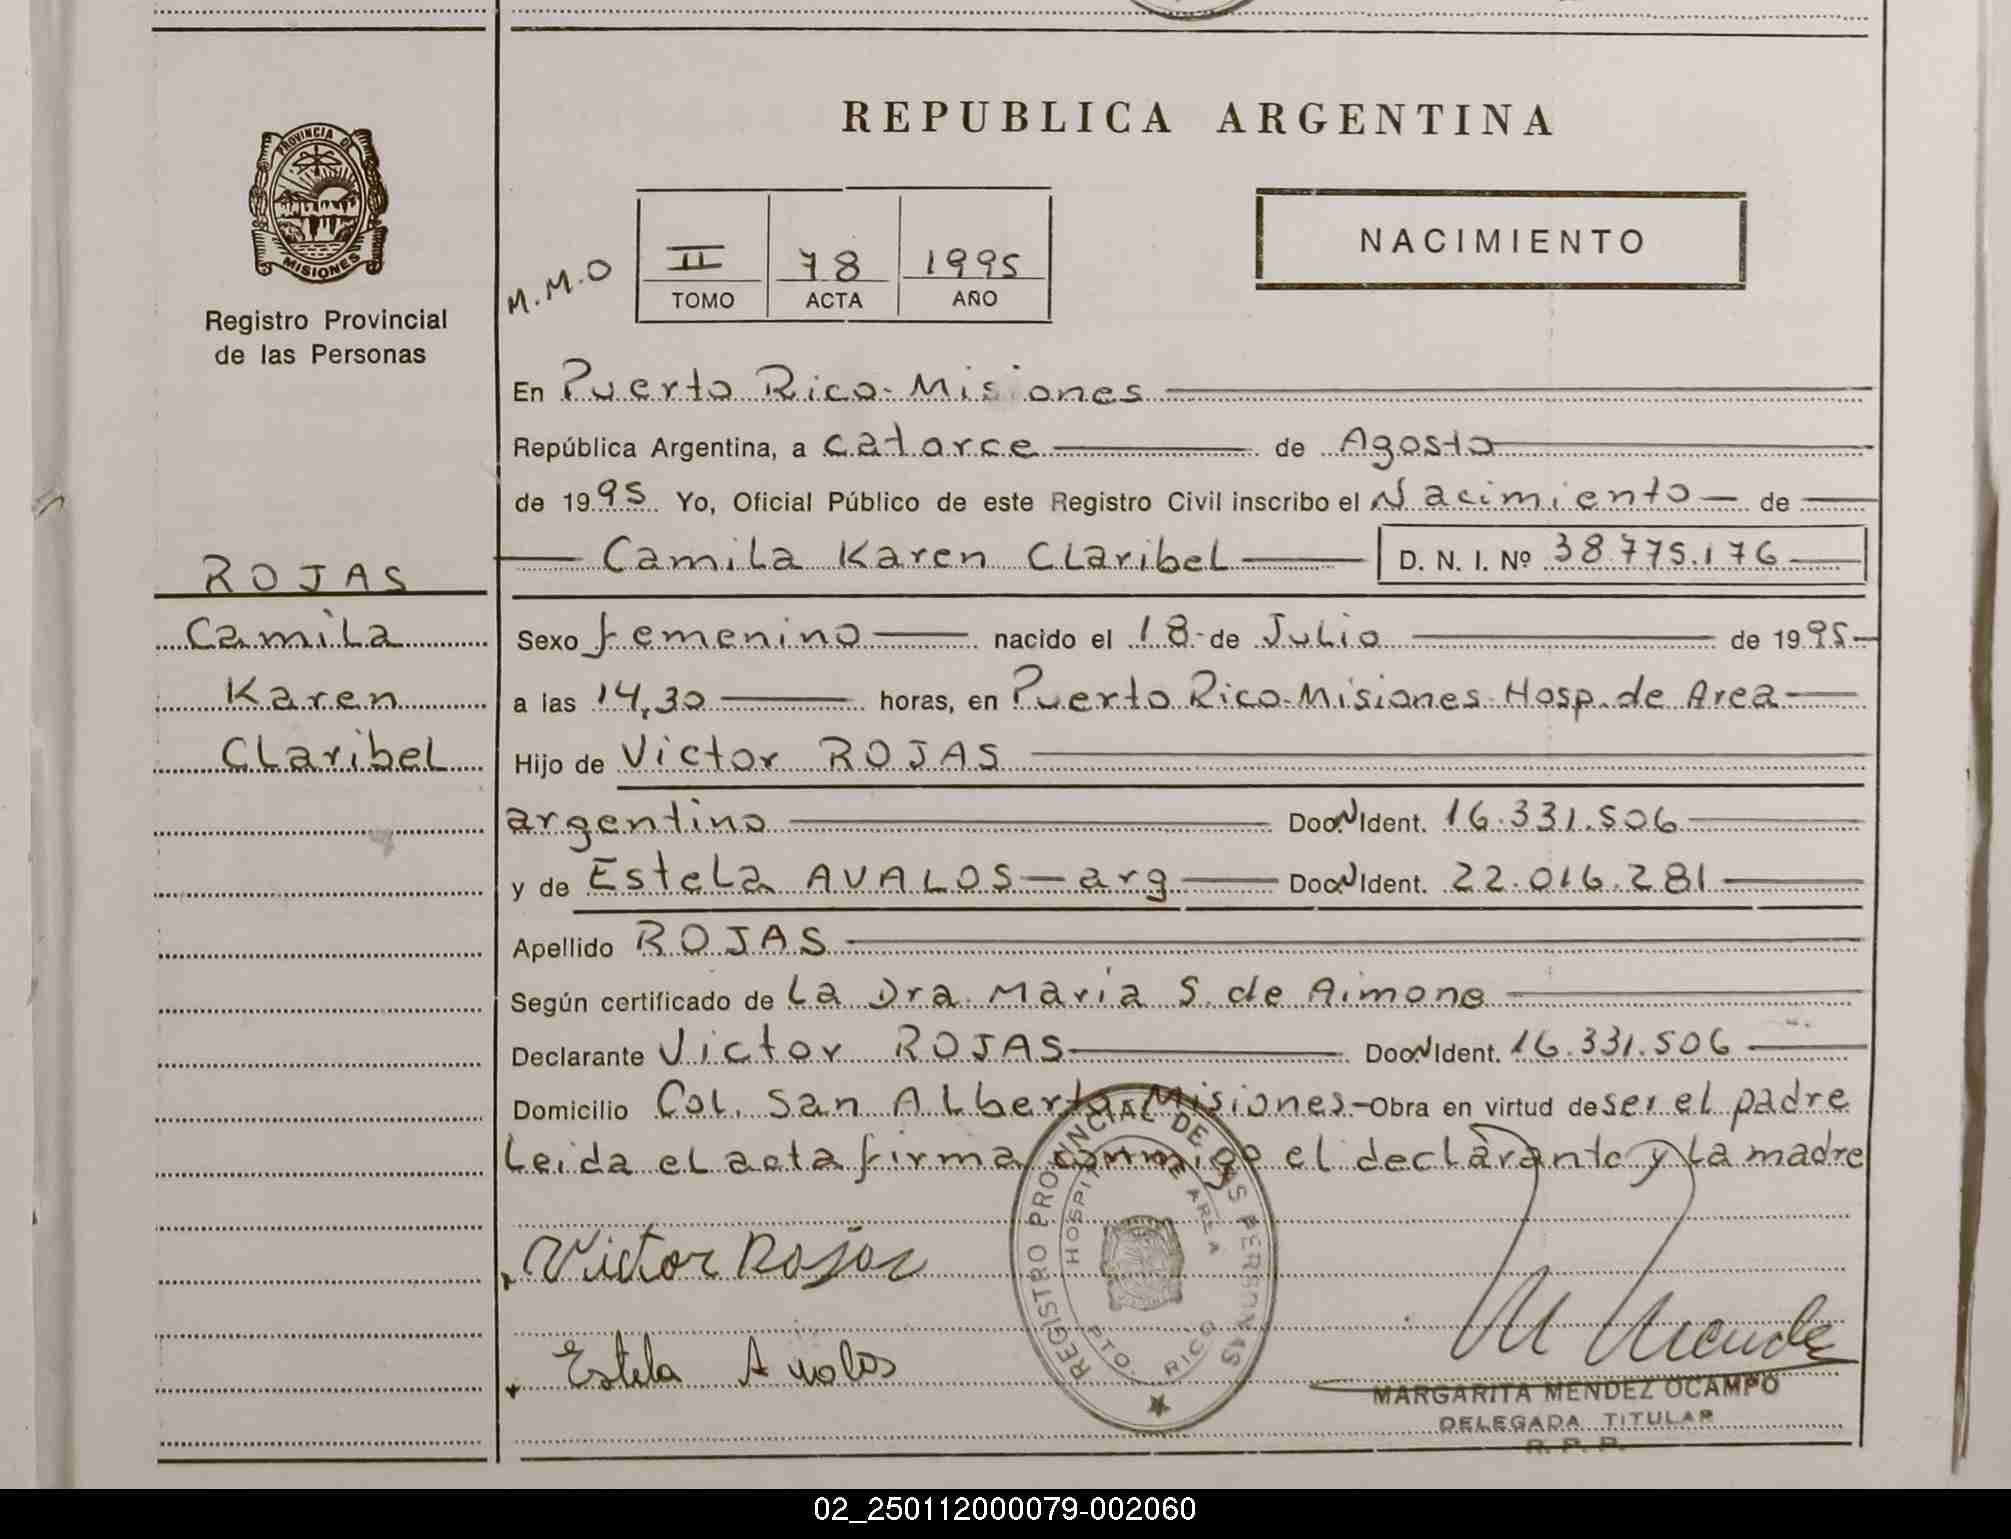 REPUBLICA ARGENTINA
PROVINCIA DE MISIONES
Registro Provincial
de las Personas
M.M.O
II 78 1995
TOMO ACTA AÑO
NACIMIENTO
En Puerto Rico-Misiones
República Argentina, a catorce de Agosto
de 1995 Yo, Oficial Público de este Registro Civil inscribo el Nacimiento de
Camila Karen Claribel D. N. I. Nº 38.775.176
ROJAS
Camila
Karen
Claribel
Sexo femenino nacido el 18 de Julio de 1995
a las 14,30 horas, en Puerto Rico-Misiones-Hosp. de Area
Hijo de Victor ROJAS
argentino Doc.N Ident. 16.331.506
y de Estela AVALOS - arg Doc.N Ident. 22.016.281
Apellido ROJAS
Según certificado de La Dra. Maria S. de Aimone
Declarante Victor ROJAS Doc.N Ident. 16.331.506
Domicilio Col. San Alberto-Misiones- Obra en virtud de ser el padre
Leida el acta firma conmigo el declarante y la madre
Victor Rojas
Estela Avalos
REGISTRO PROVINCIAL DE LAS PERSONAS
HOSPITAL DE AREA
PTO. RICO
M Mende
MARGARITA MENDEZ OCAMPO
DELEGADA TITULAR
R. P. P.
02_250112000079-002060